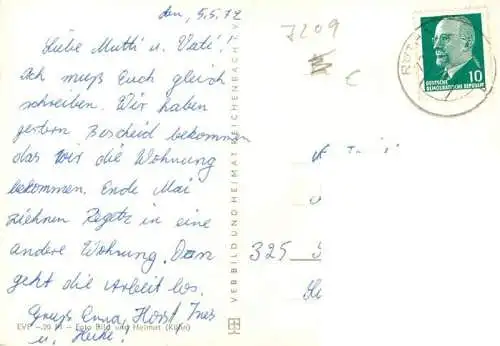 den, 5.5.72
Liebe Mutti u. Vati!
Ich muß Euch gleich
schreiben. Wir haben
gestern Bescheid bekommen
das wir die Wohnung
bekommen. Ende Mai
ziehnen Regetz in eine
andere Wohnung. Dann
geht die Arbeit los.
Gruß Anna, Horst Ines
u. Heike!
EVP -,20 M - Foto Bild und Heimat (Kühn)
VEB BILD UND HEIMAT REICHENBACH
7209
C
DEUTSCHE
DEMOKRATISCHE REPUBLIK
10
325